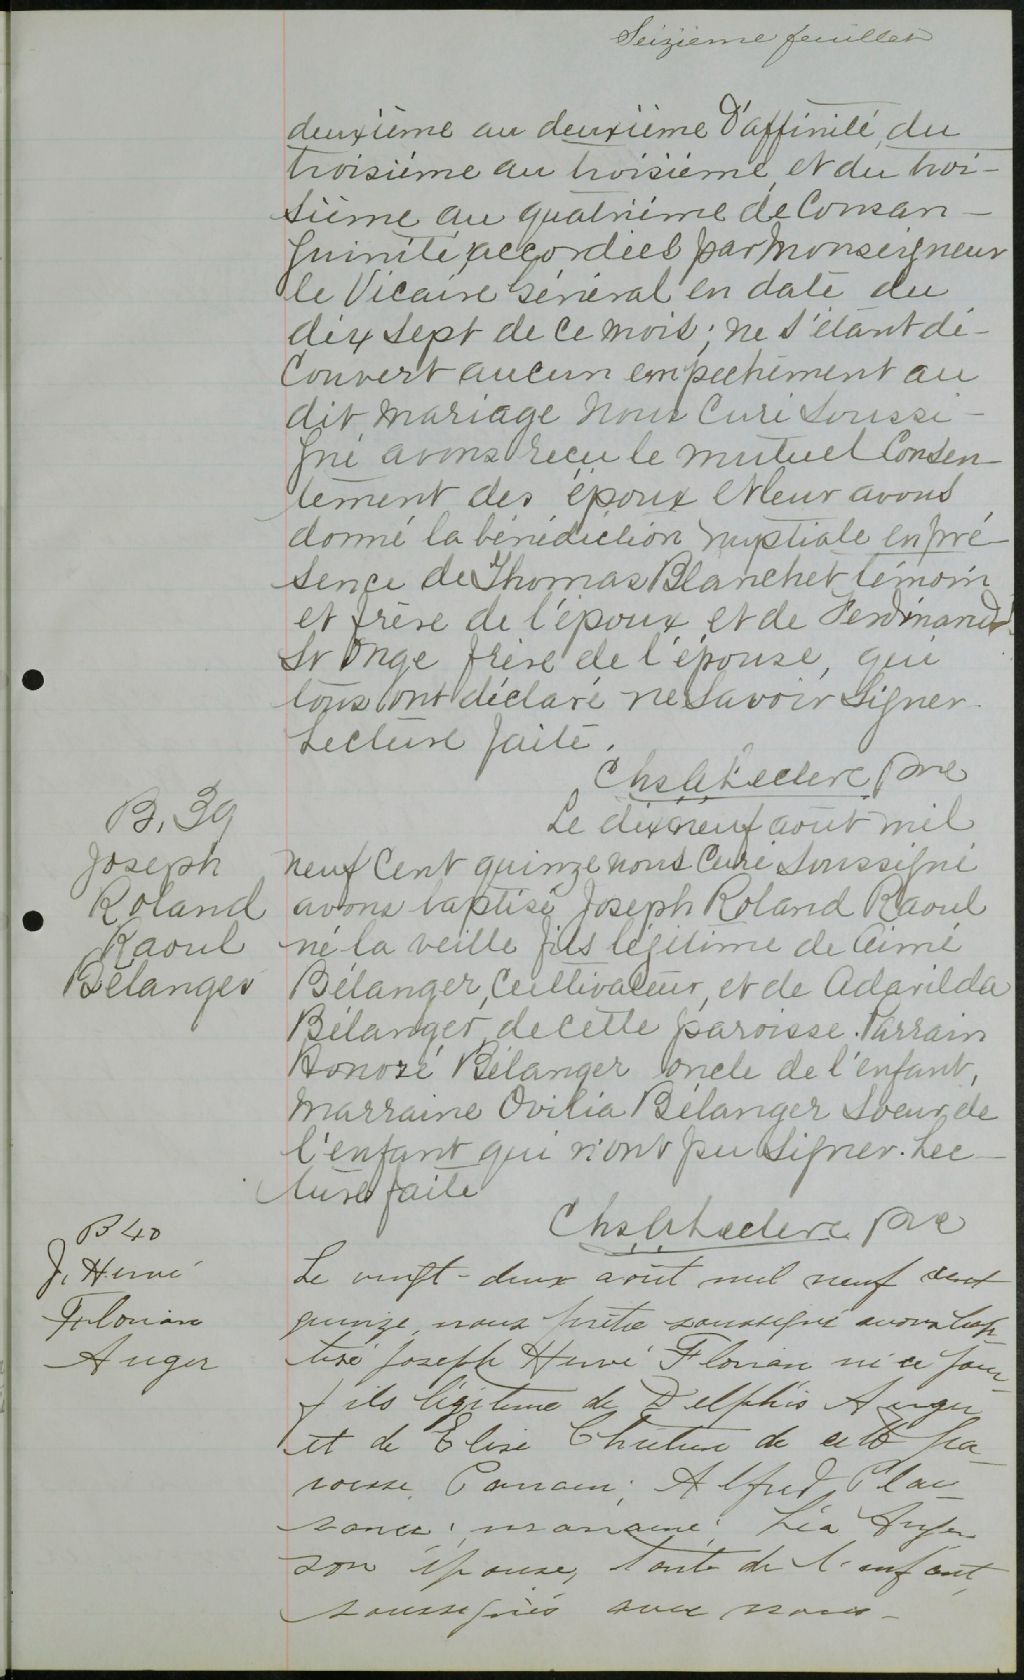 Seizième feuillet
deuxième au deuxième d'affinité, du
troisième au troisième et du troi-
sième au quatrième de Consan-
guinité accordées par Monseigneur
le Vicaire Général en date du
dix sept de ce mois; ne s'étant dé-
couvert aucun empechement au
dit mariage nous Curé soussi-
gné avons reçu le mutuel Consen-
tement des époux et leur avons
donné la bénédiction nuptiale en pré-
sence de Thomas Blanchet témoin
et frère de l'époux et de Ferdinand
St Onge frère de l'épouse, qui
tous ont déclaré ne savoir signer.
Lecture faite.
Chs Leclerc ptre
B. 39
Joseph
Roland
Raoul
Bélanger
Le dix neuf août mil
neuf Cent quinze nous Curé soussigné
avons baptisé Joseph Roland Raoul
né la veille fils légitime de Aimé
Bélanger, Cultivateur, et de Adavilda
Bélanger de cette paroisse. Parrain
Honoré Bélanger oncle de l'enfant,
Marraine Ovilia Bélanger Soeur de
l'enfant qui n'ont pu signer. Lec-
ture faite
Chs Leclerc ptre
B 40
J. Hervé
Florian
Auger
Le vingt-deux août mil neuf cent
quinze, nous prêtre soussigné avons bap-
tisé Joseph Hervé Florian né ce jour,
fils légitime de Delphis Auger
et de Elise de cette pa-
roisse. Parrain; Alfred Plai-
sance; marraine: Léa Auger
son épouse, tante de l'enfant,
soussignés avec nous-